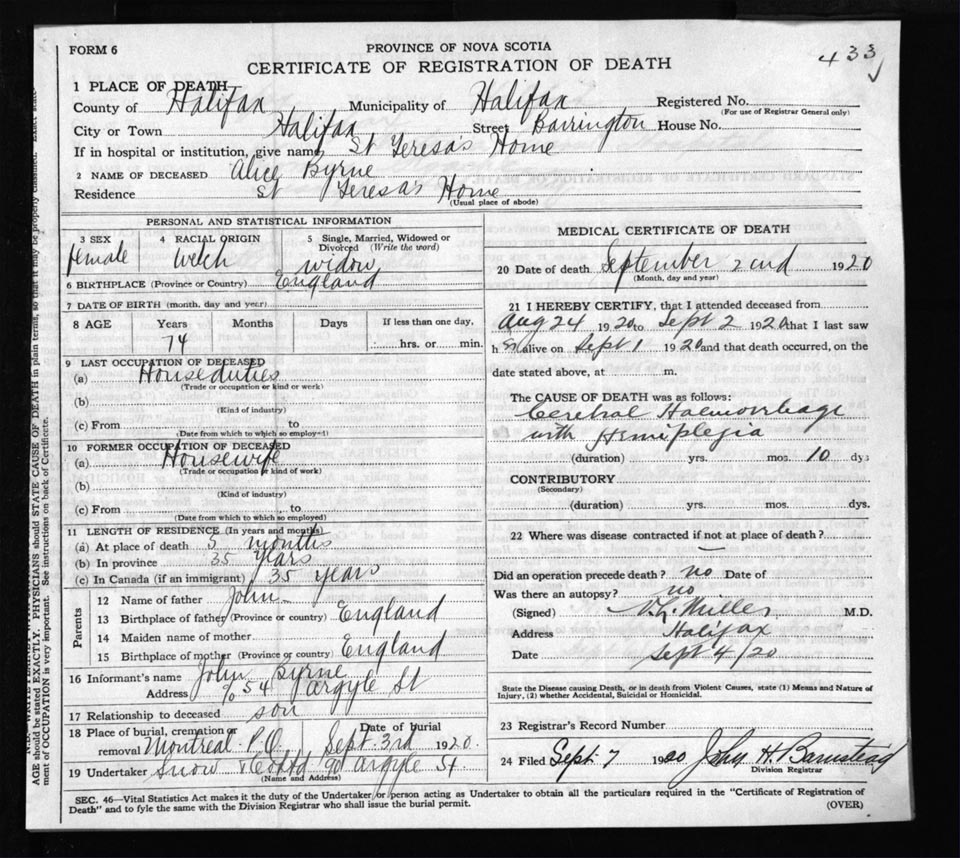 FORM 6
PROVINCE OF NOVA SCOTIA
433
CERTIFICATE OF REGISTRATION OF DEATH
1 PLACE OF DEATH
County of Halifax Municipality of Halifax Registered No.
(For use of Registrar General only)
City or Town Halifax Street Barrington House No.
If in hospital or institution, give name St Teresa's Home
2 NAME OF DECEASED Alice Byrne
Residence St Teresa's Home
(Usual place of abode)
PERSONAL AND STATISTICAL INFORMATION
3 SEX 4 RACIAL ORIGIN 5 Single, Married, Widowed or Divorced (Write the word)
Female Welch widow
6 BIRTHPLACE (Province or Country) England
7 DATE OF BIRTH (month, day and year)
8 AGE Years Months Days If less than one day,
74 hrs. or min.
9 LAST OCCUPATION OF DECEASED
(a) House duties
(Trade or occupation or kind or work)
(b)
(Kind of industry)
(c) From to
(Date from which to which so employed)
10 FORMER OCCUPATION OF DECEASED
(a) Housewife
(Trade or occupation or kind of work)
(b)
(Kind of industry)
(c) From to
(Date from which to which so employed)
11 LENGTH OF RESIDENCE (In years and months)
(a) At place of death months
(b) In province 35 years
(c) In Canada (if an immigrant) 35 years
Parents
12 Name of father John
13 Birthplace of father (Province or country) England
14 Maiden name of mother
15 Birthplace of mother (Province or country) England
16 Informant's name John Byrne
Address % 54 Argyle St
17 Relationship to deceased son
18 Place of burial, cremation or removal Montreal P.Q. Date of burial Sept. 3rd 1920.
19 Undertaker Snow & Co Ltd 90 Argyle St.
(Name and Address)
MEDICAL CERTIFICATE OF DEATH
20 Date of death September 2nd 1920
(Month, day and year)
21 I HEREBY CERTIFY, that I attended deceased from
Aug 24 1920 to Sept 2 1920 that I last saw
h er alive on Sept 1 1920 and that death occurred, on the
date stated above, at m.
The CAUSE OF DEATH was as follows:
Cerebral Haemorrhage
with Hemiplegia
(duration) yrs. mos. 10 dys
CONTRIBUTORY
(Secondary)
(duration) yrs. mos. dys.
22 Where was disease contracted if not at place of death?
—
Did an operation precede death? no Date of
Was there an autopsy? no
(Signed) Miller M.D.
Address Halifax
Date Sept 4/20
State the Disease causing Death, or in death from Violent Causes, state (1) Means and Nature of
Injury, (2) whether Accidental, Suicidal or Homicidal.
23 Registrar's Record Number
24 Filed Sept. 7 1920 John H. Barnstead
Division Registrar
SEC. 46—Vital Statistics Act makes it the duty of the Undertaker or person acting as Undertaker to obtain all the particulars required in the "Certificate of Registration of
Death" and to fyle the same with the Division Registrar who shall issue the burial permit.
(OVER)
AGE should be stated EXACTLY. PHYSICIANS should STATE CAUSE OF DEATH in plain terms, so that it may be properly classified. Exact state-
ment of OCCUPATION is very important. See instructions on back of Certificate.